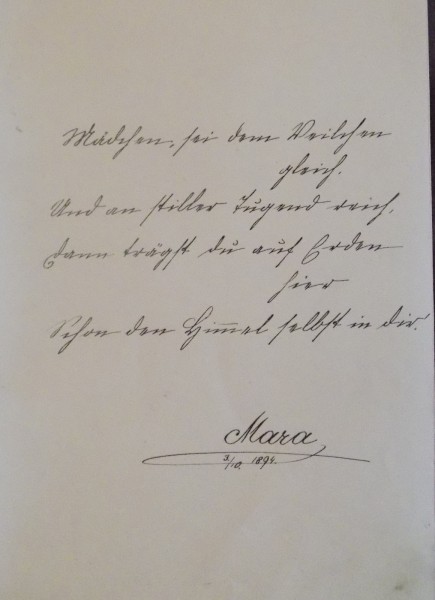 Mädchen, sei dem Veilchen
gleich.
Und an stiller Tugend reich,
Dann trägst du auf Erden
hier
Schon den Himmel selbst in dir.
Mara
3/10. 1894.